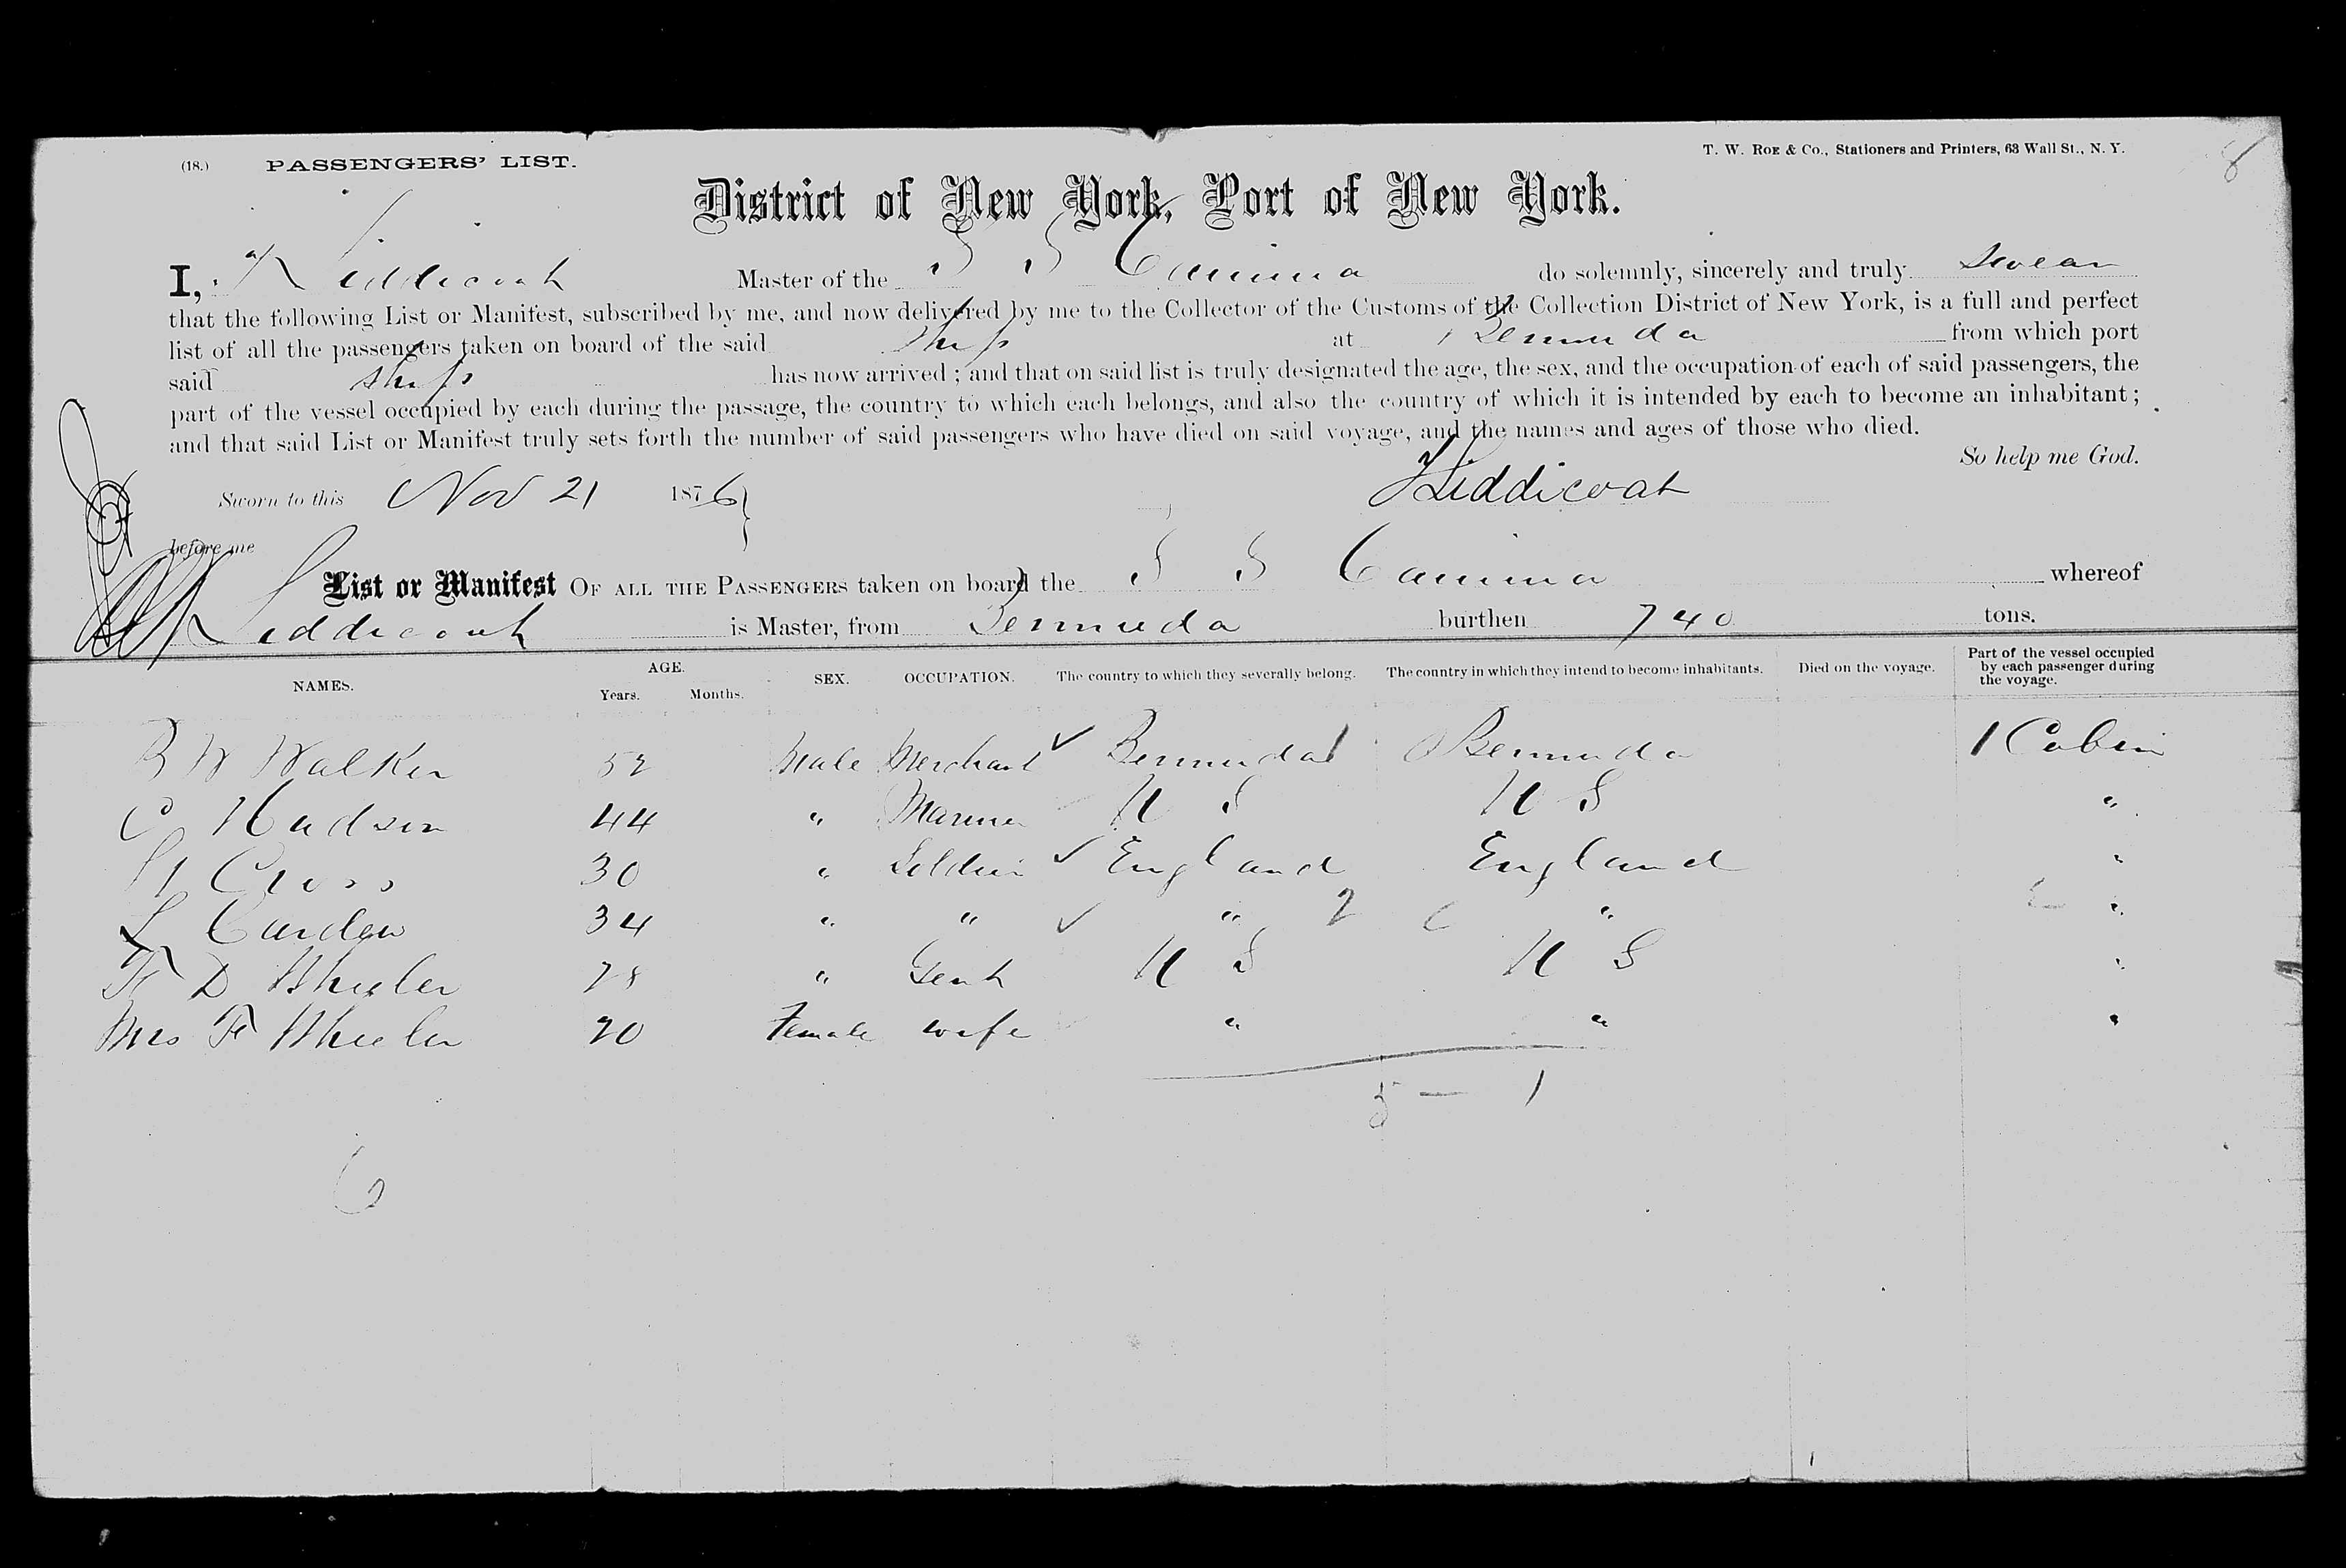 (18.) PASSENGERS' LIST.
T. W. ROE & Co., Stationers and Printers, 63 Wall St., N. Y.
8
District of New York, Port of New York.
I, Liddicoat Master of the S S Canima do solemnly, sincerely and truly swear
that the following List or Manifest, subscribed by me, and now delivered by me to the Collector of the Customs of the Collection District of New York, is a full and perfect
list of all the passengers taken on board of the said ship at Bermuda from which port
said ship has now arrived; and that on said list is truly designated the age, the sex, and the occupation of each of said passengers, the
part of the vessel occupied by each during the passage, the country to which each belongs, and also the country of which it is intended by each to become an inhabitant;
and that said List or Manifest truly sets forth the number of said passengers who have died on said voyage, and the names and ages of those who died.
So help me God.
Sworn to this Nov 21 1876 Liddicoat
before me
List or Manifest OF ALL THE PASSENGERS taken on board the S S Canima whereof
Liddicoat is Master, from Bermuda burthen 740 tons.
NAMES. AGE. Years. Months. SEX. OCCUPATION. The country to which they severally belong. The country in which they intend to become inhabitants. Died on the voyage. Part of the vessel occupied by each passenger during the voyage.
B W Walker 52 Male Merchant ✓ Bermuda 1 Bermuda 1 Cabin
C Hudson 44 " Mariner U S U S "
Cross 30 " Soldier ✓ England England "
L Carden 34 " " ✓ " 2 " "
F D Wheeler 28 " Gent U S U S "
Mrs F Wheeler 20 Female wife " " "
5 — 1
6